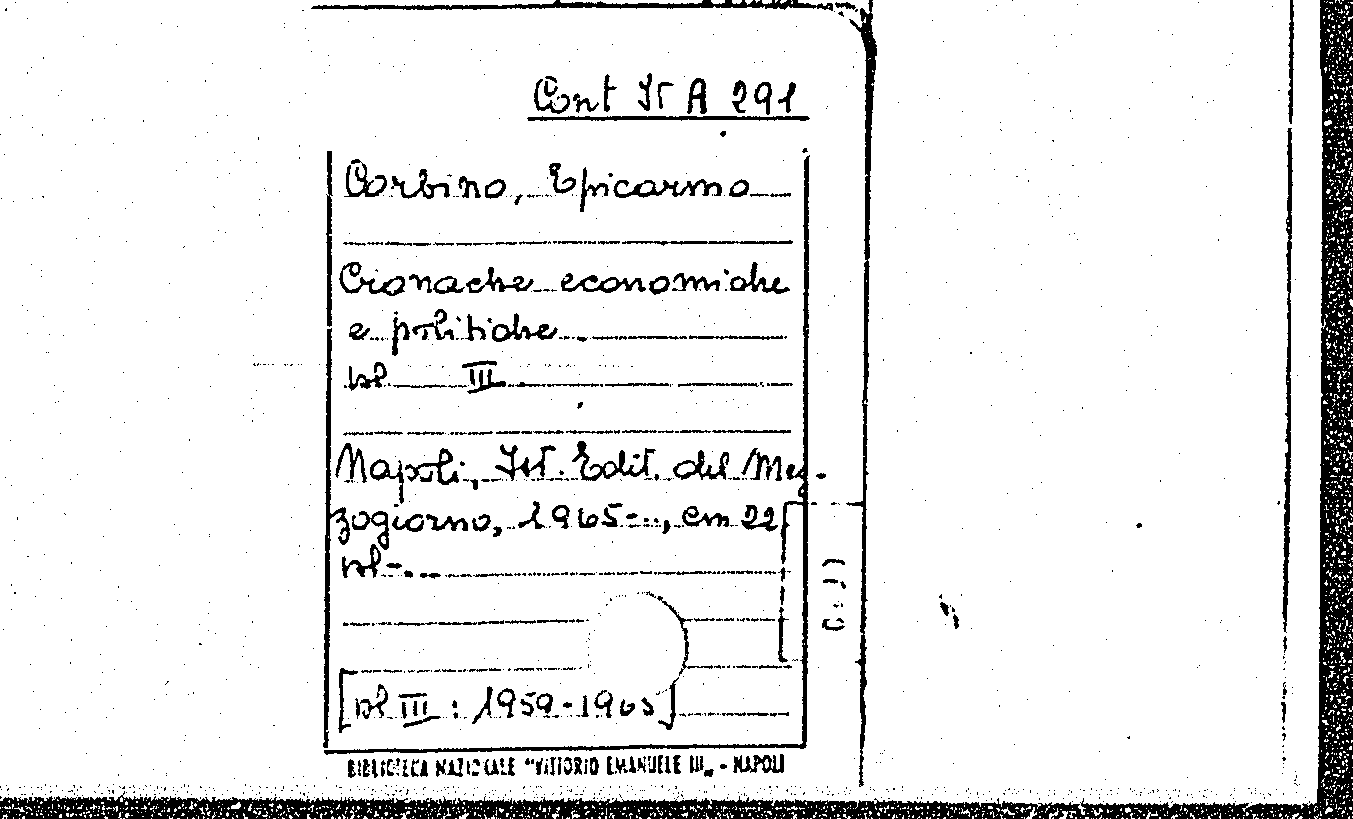 Cont It A 291
Corbino, Epicarmo
Cronache economiche
e politiche.
vol III.
Napoli, Ist. Edit. del Mez-
zogiorno, 1965-.., cm 22
vol-...
[vol III : 1959-1965]
BIBLIOTECA NAZIONALE "VITTORIO EMANUELE III„ - NAPOLI